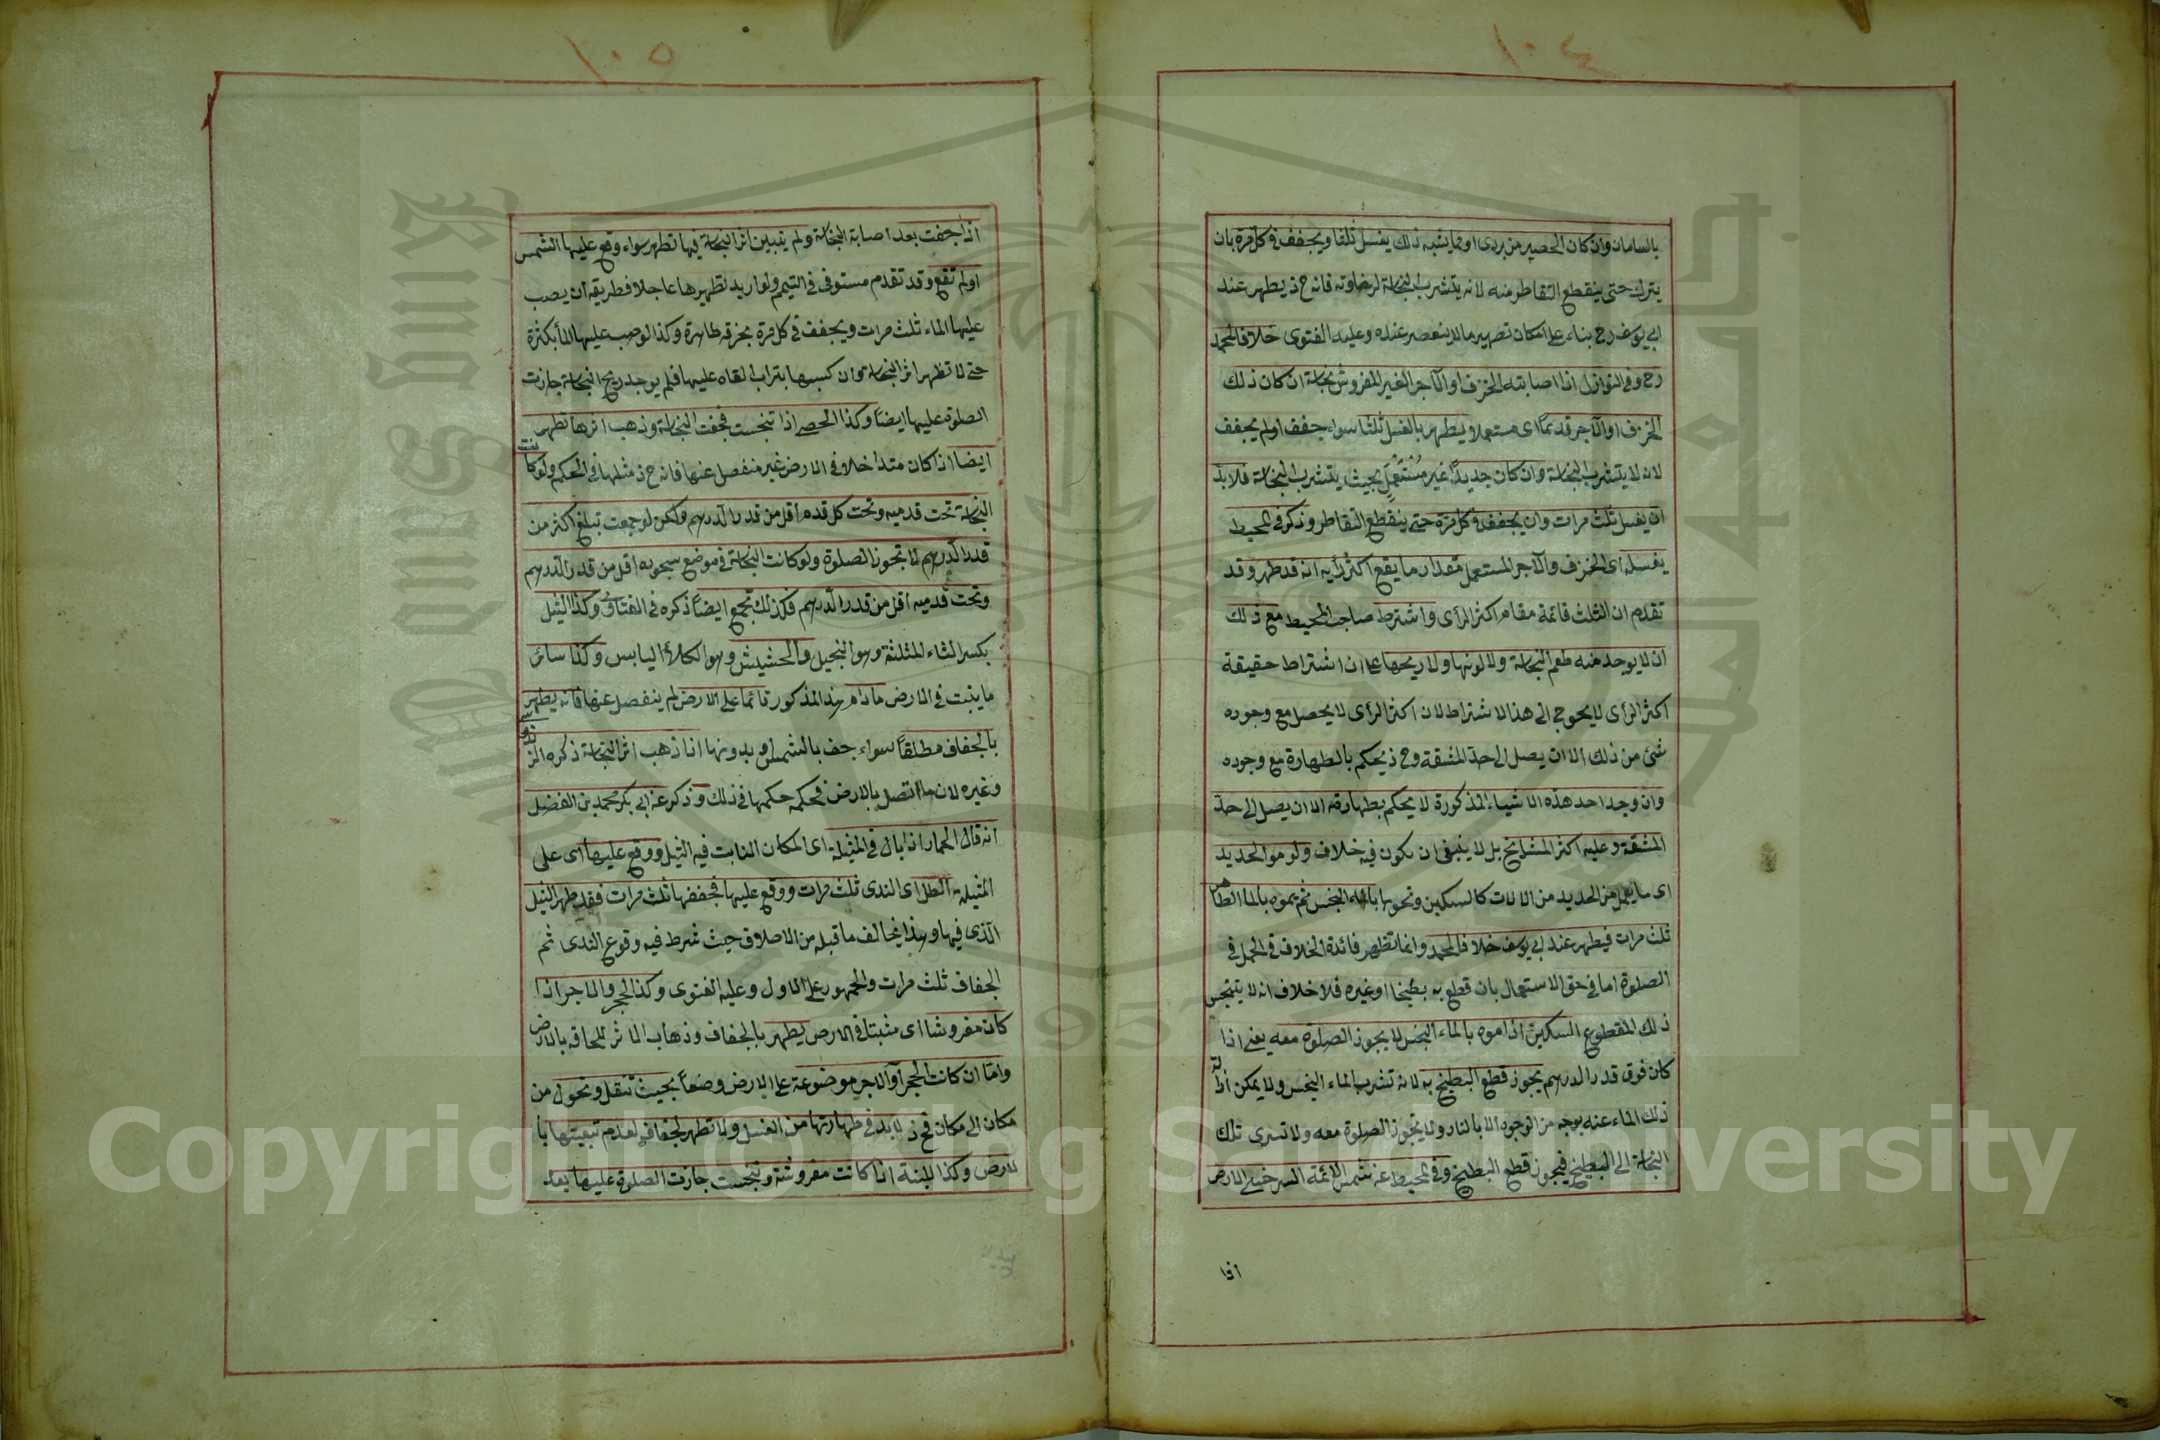 ١٠٤
بالسامان وان كان الحصير من بردى او ما يشبه ذلك يغسل ثلثا ويجفف في كل مرة بان
يترك حتى ينقطع التقاطر منه لانه يتشرب النجاسة لرخاوته فانه ح ذ يطهر عند
ابي يوسف رح بناء على امكان تطهير مالا ينعصر عنده وعليه الفتوى خلافا لمحمد
رح وفي النوازل اذا اصابته الخزف او الآجر الغير المفروش نجاسة ان كان ذلك
الخزف او الآجر قديما اى مستعملا ويطهر بالغسل ثلثا سواء جفف او لم يجفف
لانه لا يتشرب النجاسة وان كان جديدا غير مستعمل بحيث يتشرب النجاسة فلا بد
ان يغسل ثلث مرات وان يجفف في كل مرة حتى ينقطع التقاطر وذكر في المحيط
يغسله اى الخزف والآجر المستعمل مقدار ما يقع اكثر رأيه انه قد طهر وقد
تقدم ان الثلث قائمة مقام اكثر الرأى واشترط صاحب المحيط مع ذلك
ان لا يوجد منه طعم النجاسة ولا لونها ولا ريحها على ان اشتراط حقيقة
اكثر الرأى لا يحوج الى هذا الاشتراط لان اكثر الرأى لا يحصل مع وجوده
شئ من ذلك الا ان يصل الى حد المشقة وح ذ يحكم بالطهارة مع وجوده
وان وجد احد هذه الاشياء المذكورة لا يحكم بطهارته الا ان يصل الى حد
المشقة وعليه اكثر المشايخ بل لا ينبغى ان يكون فيه خلاف ولو موه الحديد
اى ما يعمل من الحديد من الالات كالسكين ونحوها بالماء النجس ثم يموه بالماء الطاهر
ثلث مرات فيطهر عند ابي يوسف خلافا لمحمد وانما تظهر فائدة الخلاف في الحمل في
الصلوة اما في حق الاستعمال بان قطع به بطيخا او غيره فلا خلاف انه لا يتنجس
ذلك المقطوع السكين اذا موه بالماء النجس لا يجوز الصلوة معه يعنى اذا
كان فوق قدر الدرهم يجوز قطع البطيخ به لانه تشرب الماء النجس ولا يمكن ازالة
ذلك الماء عنه بوجه من الوجوه الا بالنار ولا يجوز الصلوة معه ولا تسرى تلك
النجاسة الى البطيخ فيجوز قطع البطيخ وفي المحيط عن شمس الائمة السرخسي الارض
اذا
١٠٥
اذا جفت بعد اصابة النجاسة ولم يتبين اثر النجاسة فيها تطهر سواء وقع عليها الشمس
او لم تقع وقد تقدم مستوفى في التيمم ولو اريد تطهيرها عاجلا فطريقه ان يصب
عليها الماء ثلث مرات ويجفف في كل مرة بخرقة طاهرة وكذا لو صب عليها الماء بكثرة
حتى لا تظهر اثر النجاسة وان كبسها بتراب القاه عليها فلم يوجد ريح النجاسة جازت
الصلوة عليها ايضا وكذا الحصى اذا تنجست فجفت النجاسة وذهب اثرها تطهر
ايضا اذا كان متداخلا في الارض غير منفصل عنها فانه ح ذ مثلها في الحكم ولو كانت
النجاسة تحت قدميه وتحت كل قدم اقل من قدر الدرهم ولكن لو جمعت تبلغ اكثر من
قدر الدرهم لا تجوز الصلوة ولو كانت النجاسة في موضع سجوده اقل من قدر الدرهم
وتحت قدميه اقل من قدر الدرهم فكذلك تجمع ايضا ذكره في الفتاوى وكذا الثيل
بكسر الثاء المثلثة وهو النجيل والحشيش وهو الكلأ اليابس وكذا سائر
ما ينبت في الارض ما دام هذا المذكور قائما على الارض لم ينفصل عنها فانه يطهر
بالجفاف مطلقا سواء جف بالشمس او بدونها اذا ذهب اثر النجاسة ذكره الزندوستى
وغيره لان ما اتصل بالارض فحكمه حكمها في ذلك وذكر عن ابي بكر محمد بن الفضل
انه قال الحمار اذا بال في المثيلة اى المكان النابت فيه الثيل ووقع عليها اى على
المثيلة الطل اى الندى ثلث مرات ووقع عليها فجففها ثلث مرات فقد طهر الثيل
الذى فيها وهذا يخالف ما قبله من الاطلاق حيث شرط فيه وقوع الندى ثم
الجفاف ثلث مرات والجمهور على الاول وعليه الفتوى وكذا الحجر والاجر اذا
كان مفروشا اى مثبتا في الارض يطهر بالجفاف وذهاب الاثر للحاقه بالارض
واما ان كانت الحجر او الاجر موضوعة على الارض وضعا بحيث تنقل وتحول من
مكان الى مكان فح ذ لا بد في طهارتها من الغسل ولا تطهر لجفافها لعدم تبعيتها با
لارض وكذا اللبنة اذا كانت مفروشة وتنجست جازت الصلوة عليها بعد
Copyright © King Saud University
King Saud University
1957